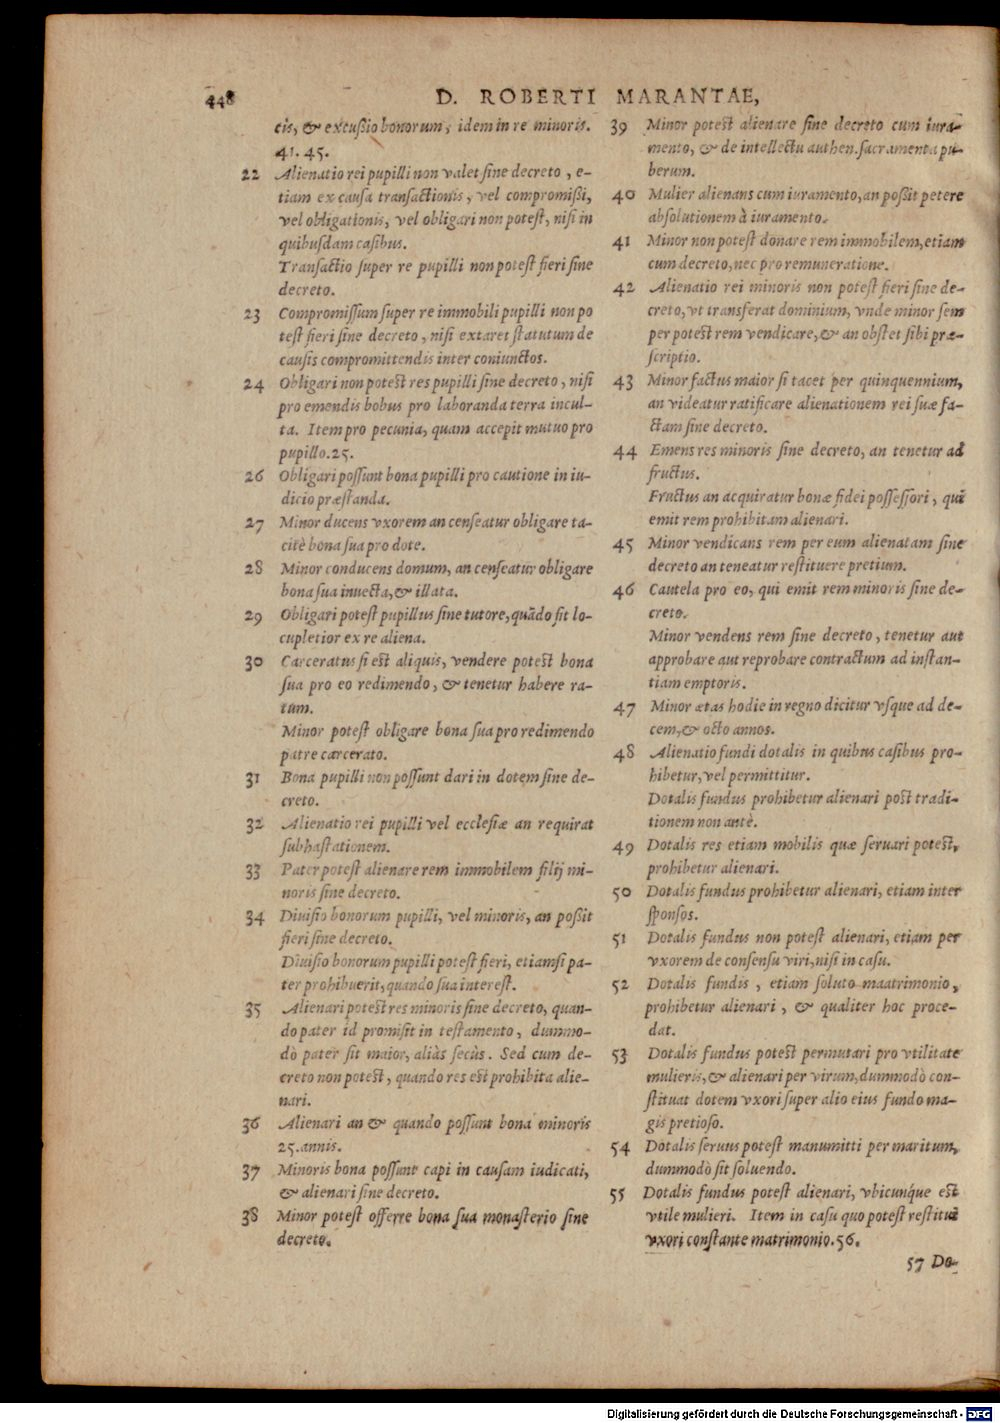 448
D. ROBERTI MARANTAE,
cis, & excußio bonorum, idem in re minoris.
41. 45.
22 Alienatio rei pupilli non valet sine decreto, e-
tiam ex causa transactionis, vel compromißi,
vel obligationis, vel obligari non potest, nisi in
quibusdam casibus.
Transactio super re pupilli non potest fieri sine
decreto.
23 Compromissum super re immobili pupilli non po
test fieri sine decreto, nisi extaret statutum de
causis compromittendis inter coniunctos.
24 Obligari non potest res pupilli sine decreto, nisi
pro emendis bobus pro laboranda terra incul-
ta. Item pro pecunia, quam accepit mutuo pro
pupillo. 25.
26 Obligari possunt bona pupilli pro cautione in iu-
dicio præstanda.
27 Minor ducens vxorem an censeatur obligare ta-
citè bona sua pro dote.
28 Minor conducens domum, an censeatur obligare
bona sua inuecta, & illata.
29 Obligari potest pupillus sine tutore, quādo fit lo-
cupletior ex re aliena.
30 Carceratus si est aliquis, vendere potest bona
sua pro eo redimendo, & tenetur habere ra-
tum.
Minor potest obligare bona sua pro redimendo
patre carcerato.
31 Bona pupilli non possunt dari in dotem sine de-
creto.
32 Alienatio rei pupilli vel ecclesiæ an requirat
subhastationem.
33 Pater potest alienare rem immobilem filij mi-
noris sine decreto.
34 Diuisio bonorum pupilli, vel minoris, an poßit
fieri sine decreto.
Diuisio bonorum pupilli potest fieri, etiamsi pa-
ter prohibuerit, quando sua interest.
35 Alienari potest res minoris sine decreto, quan-
do pater id promisit in testamento, dummo-
dò pater sit maior, aliàs secùs. Sed cum de-
creto non potest, quando res est prohibita alie-
nari.
36 Alienari an & quando possunt bona minoris
25. annis.
37 Minoris bona possunt capi in causam iudicati,
& alienari sine decreto.
38 Minor potest offerre bona sua monasterio sine
decreto.
39 Minor potest alienare sine decreto cum iura-
mento, & de intellectu authen. sacramenta pu-
berum.
40 Mulier alienans cum iuramento, an poßit petere
absolutionem à iuramento.
41 Minor non potest donare rem immobilem, etiam
cum decreto, nec pro remuneratione.
42 Alienatio rei minoris non potest fieri sine de-
creto, vt transferat dominium, vnde minor sem
per potest rem vendicare, & an obstet sibi præ-
scriptio.
43 Minor factus maior si tacet per quinquennium,
an videatur ratificare alienationem rei suæ fa-
ctam sine decreto.
44 Emens res minoris sine decreto, an tenetur ad
fructus.
Fructus an acquiratur bonæ fidei possessori, qui
emit rem prohibitam alienari.
45 Minor vendicans rem per eum alienatam sine
decreto an teneatur restituere pretium.
46 Cautela pro eo, qui emit rem minoris sine de-
creto.
Minor vendens rem sine decreto, tenetur aut
approbare aut reprobare contractum ad instan-
tiam emptoris.
47 Minor ætas hodie in regno dicitur vsque ad de-
cem, & octo annos.
48 Alienatio fundi dotalis in quibus casibus pro-
hibetur, vel permittitur.
Dotalis fundus prohibetur alienari post tradi-
tionem non antè.
49 Dotalis res etiam mobilis quæ seruari potest,
prohibetur alienari.
50 Dotalis fundus prohibetur alienari, etiam inter
sponsos.
51 Dotalis fundus non potest alienari, etiam per
vxorem de consensu viri, nisi in casu.
52 Dotalis fundis, etiam soluto maatrimonio,
prohibetur alienari, & qualiter hoc proce-
dat.
53 Dotalis fundus potest permutari pro vtilitate
mulieris, & alienari per virum, dummodò con-
stituat dotem vxori super alio eius fundo ma-
gis pretioso.
54 Dotalis seruus potest manumitti per maritum,
dummodò sit soluendo.
55 Dotalis fundus potest alienari, vbicunq́ue est
vtile mulieri. Item in casu quo potest restitui
vxori constante matrimonio. 56.
57 Do-
Digitalisierung gefördert durch die Deutsche Forschungsgemeinschaft - DFG